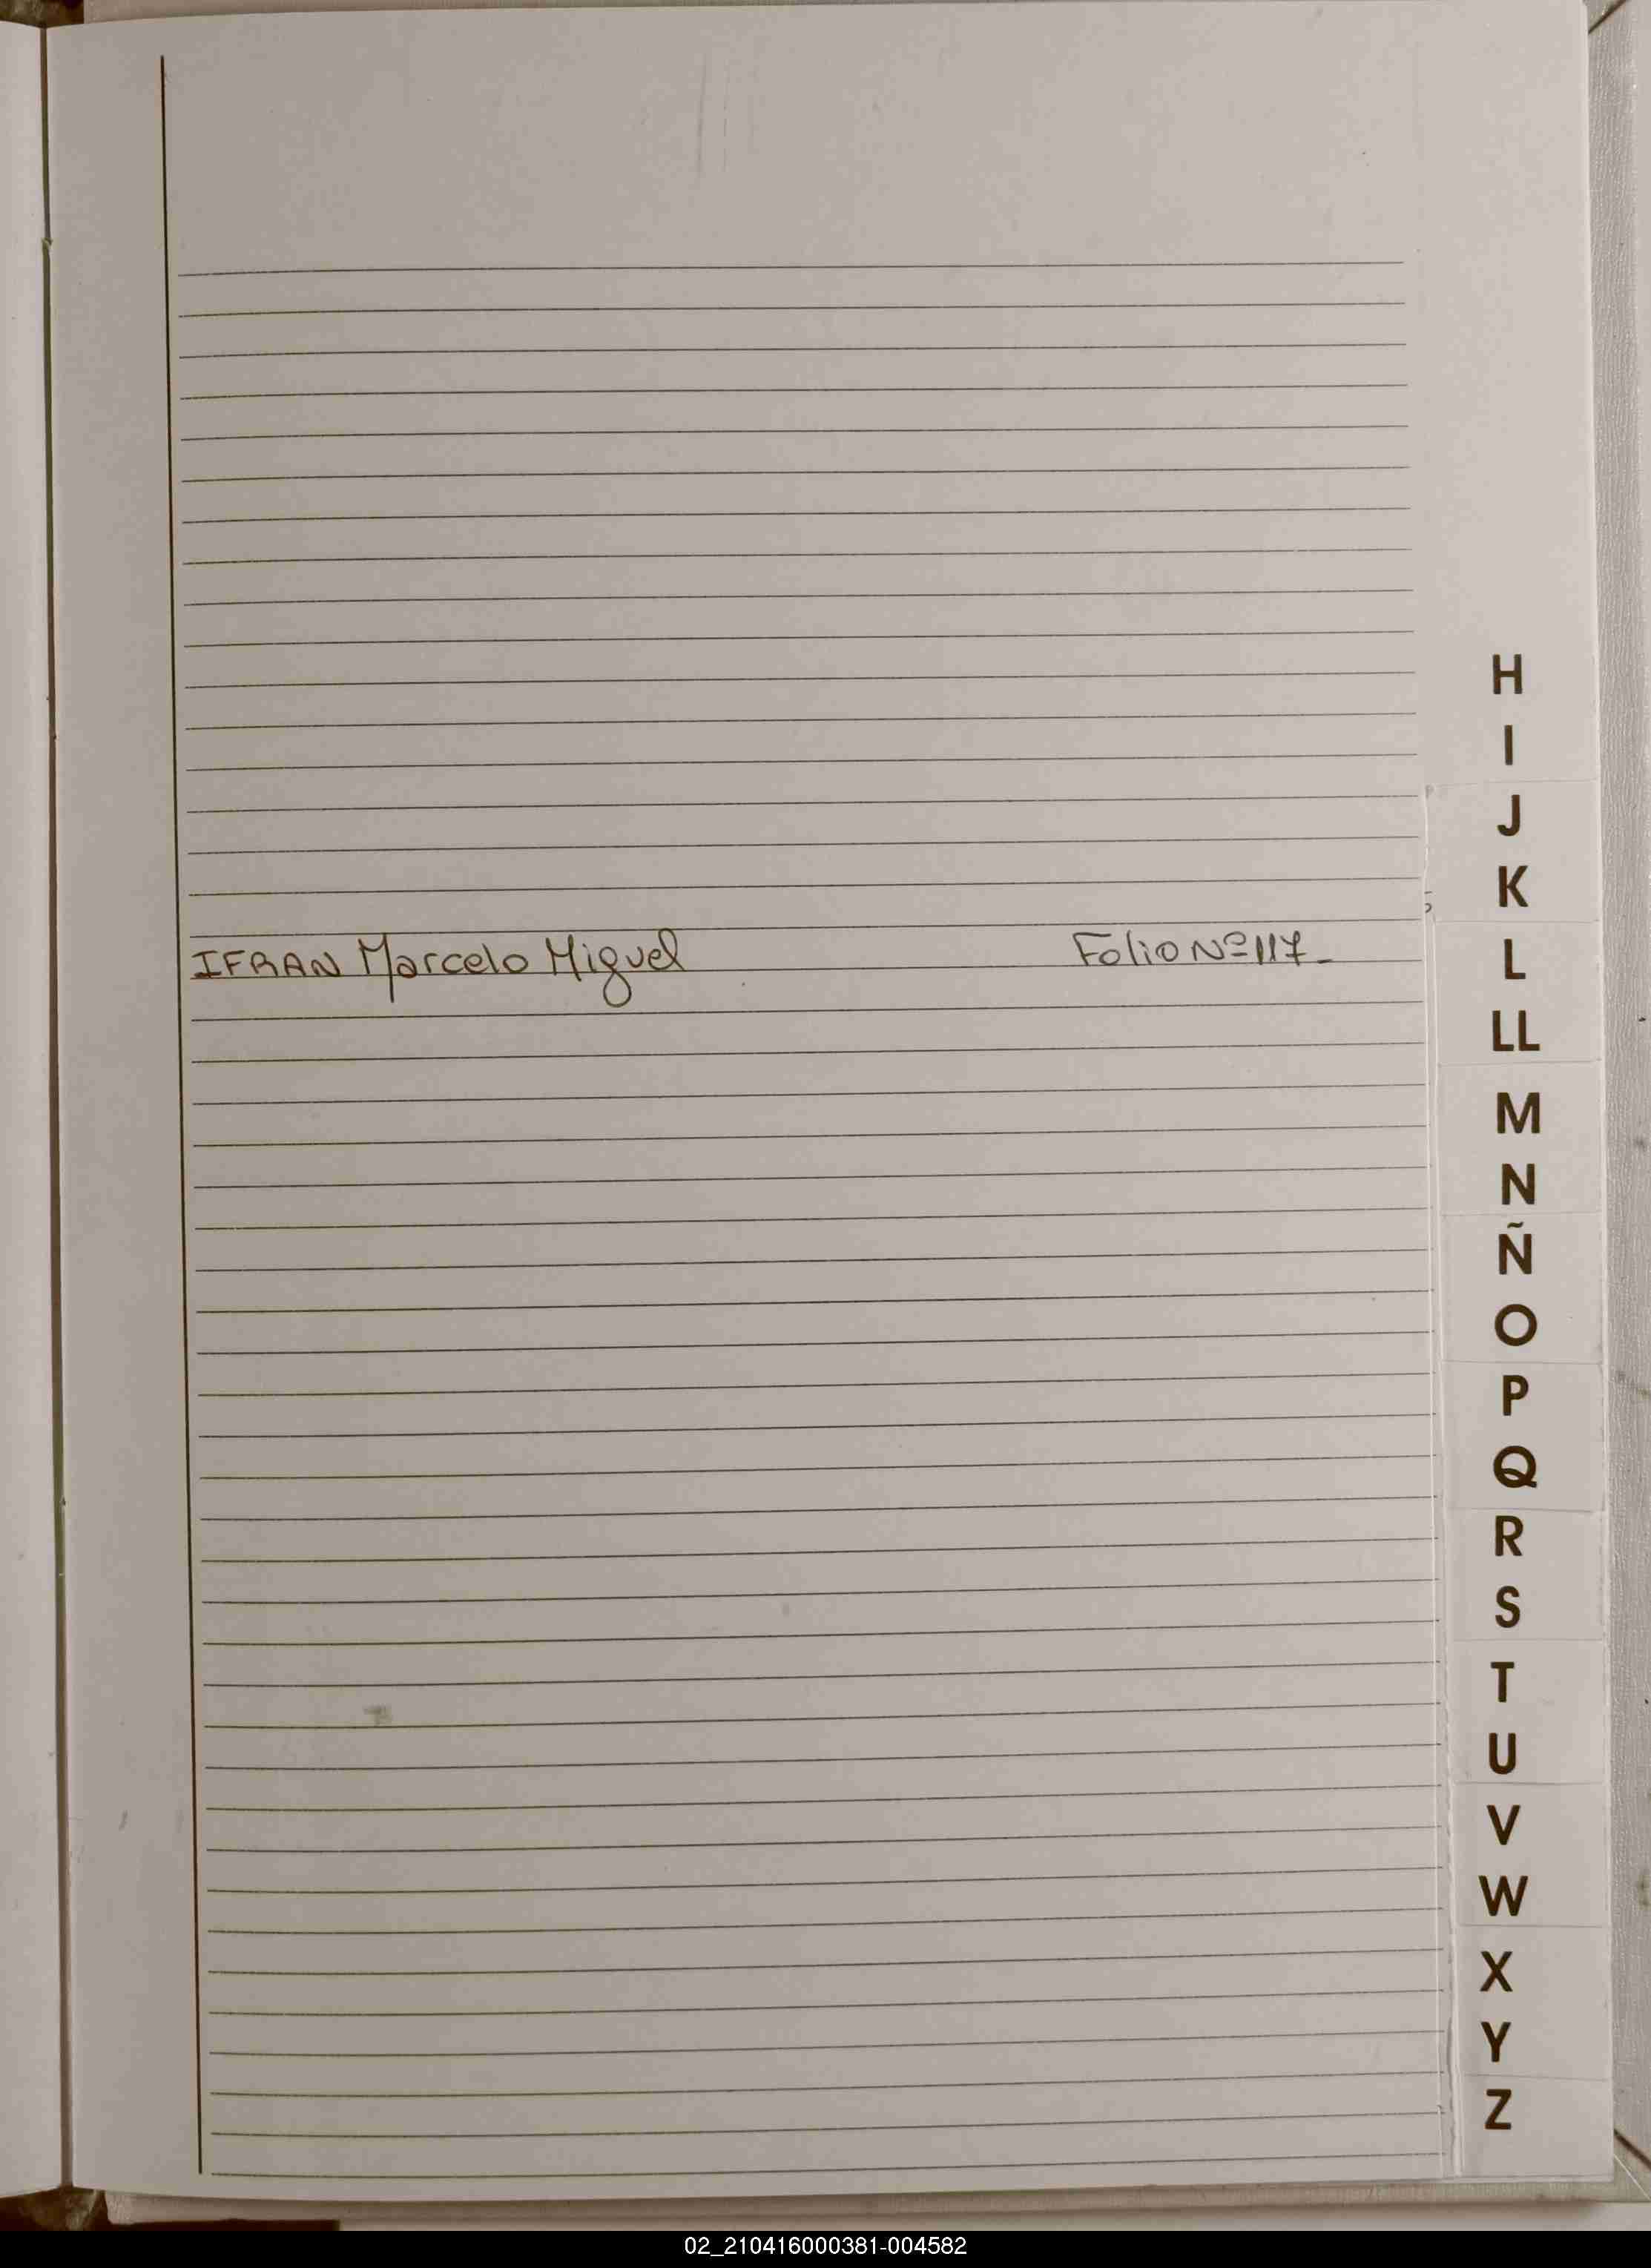 H
I
J
K
IFRAN Marcelo Miguel Folio Nº 117-
L
LL
M
N
Ñ
O
P
Q
R
S
T
U
V
W
X
Y
Z
02_210416000381-004582